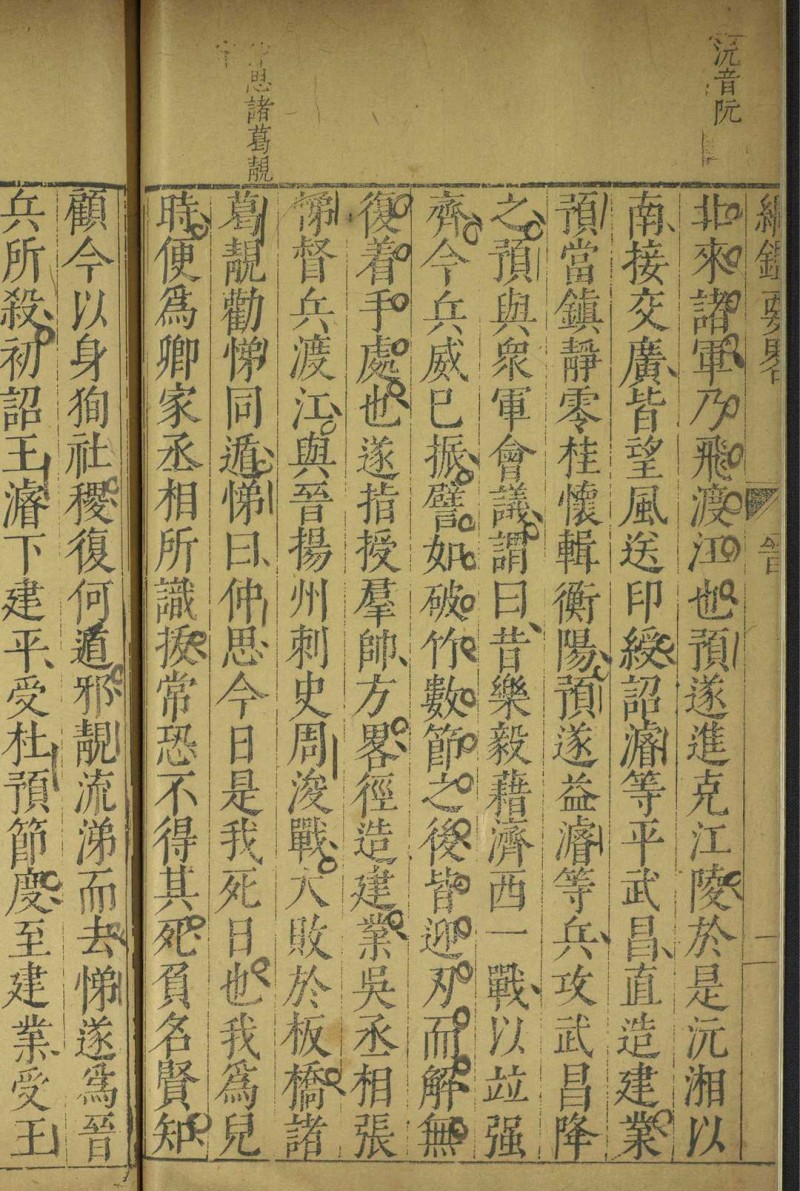 沅音阮
仲思諸葛靚
綱鑑要畧
晉
二
北來諸軍乃飛渡江也預遂進克江陵於是沅湘以
南接交廣皆望風送印綬詔濬等平武昌直造建業
預當鎮靜零桂懷輯衡陽預遂益濬等兵攻武昌降
之預與衆軍會議謂曰昔樂毅藉濟西一戰以竝强
齊今兵威已振譬如破竹數節之後皆迎刃而解無
復着手處也遂指授羣帥方畧徑造建業吳丞相張
悌督兵渡江與晉揚州刺史周浚戰大敗於板橋諸
葛靚勸悌同遁悌曰仲思今日是我死日也我爲兒
時便爲卿家丞相所識拔常恐不得其死負名賢知
顧今以身狥社稷復何遁邪靚流涕而去悌遂爲晉
兵所殺初詔王濬下建平受杜預節度至建業受王